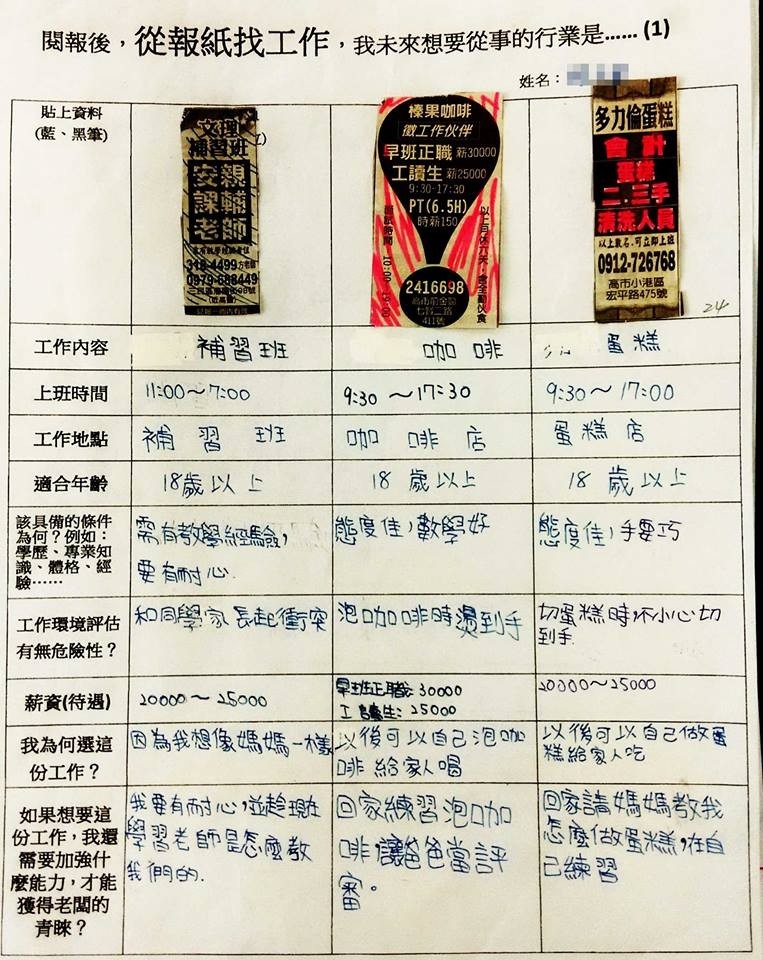 閱報後，從報紙找工作，我未來想要從事的行業是…… (1)
姓名：
貼上資料
(藍、黑筆)
文理
補習班
安親
課輔
老師
318-4499
0979-688449
榛果咖啡
徵工作伙伴
早班正職 薪30000
工讀生 薪25000
9:30-17:30
PT(6.5H)
時薪150
以上月休六天，會全勤伙食
2416698
高市前金區
七賢二路
411號
多力倫蛋糕
會計
蛋糕
二.三手
清洗人員
以上數名.可立即上班
0912-726768
高市小港區
宏平路475號
24
工作內容
補習班
咖啡
蛋糕
上班時間
11:00～7:00
9:30～17:30
9:30～17:00
工作地點
補習班
咖啡店
蛋糕店
適合年齡
18歲以上
18歲以上
18歲以上
該具備的條件
為何？例如：
學歷、專業知
識、體格、經
驗……
需有教學經驗，
要有耐心.
態度佳，數學好
態度佳，手要巧
工作環境評估
有無危險性？
和同學家長起衝突
泡咖啡時燙到手
切蛋糕時，不小心切
到手.
薪資(待遇)
20000～25000
早班正職：30000
工讀生：25000
20000～25000
我為何選這
份工作？
因為我想像媽媽一樣
以後可以自己泡咖
啡給家人喝
以後可以自己做蛋
糕給家人吃
如果想要這
份工作，我還
需要加強什
麼能力，才能
獲得老闆的
青睞？
我要有耐心，並趁現在
學習老師是怎麼教
我們的.
回家練習泡咖
啡，讓爸爸當評
審。
回家請媽媽教我
怎麼做蛋糕，在自
己練習